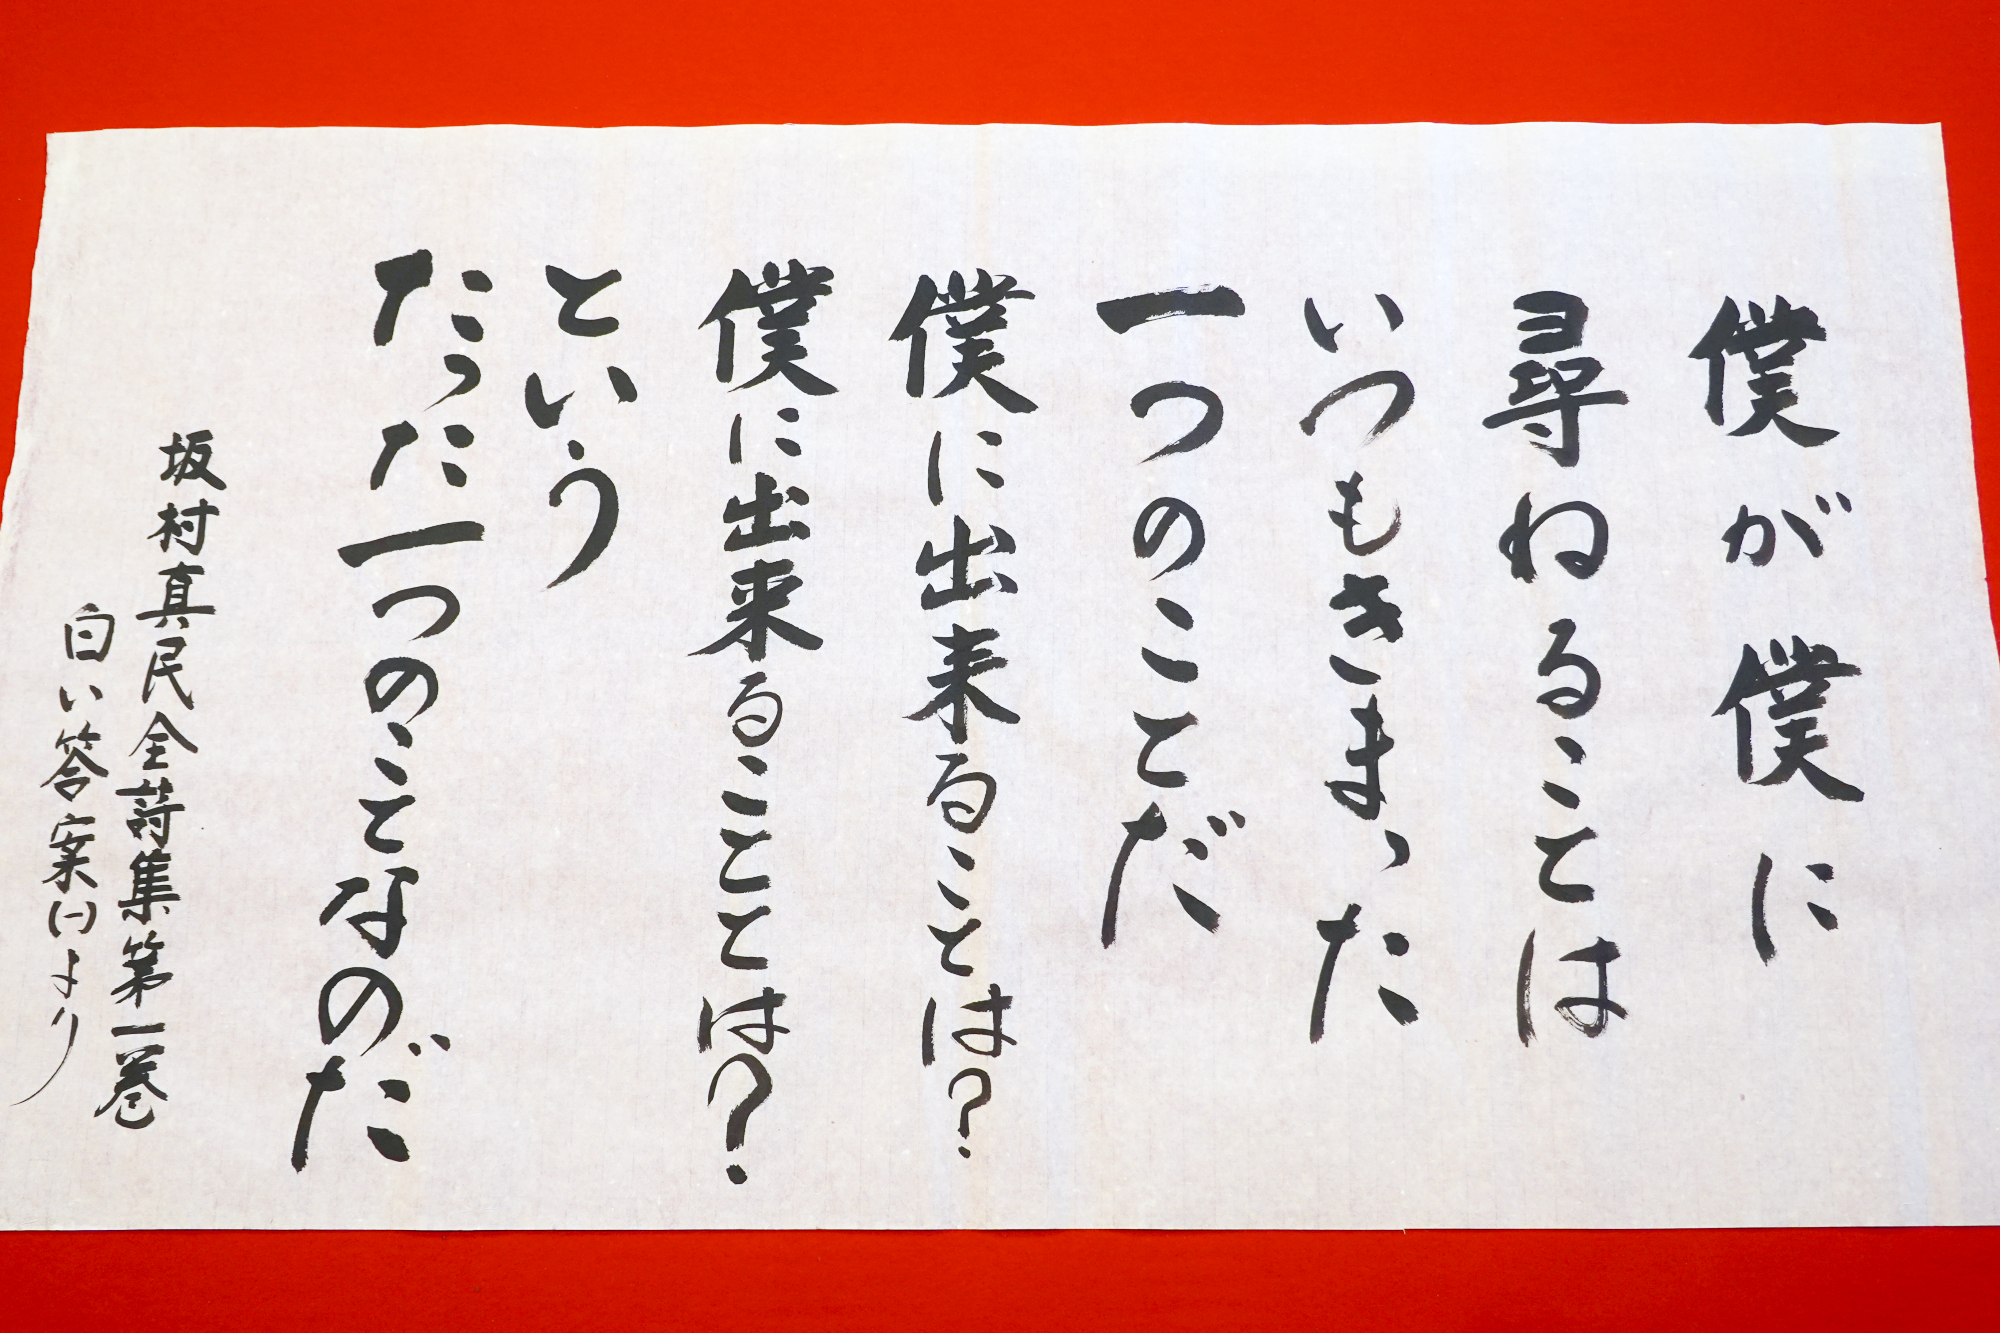 僕が僕に
尋ねることは
いつもきまった
一つのことだ
僕に出来ることは?
僕に出来ることは?
という
たった一つのことなのだ
坂村真民全詩集第一巻
白い答案(一)より